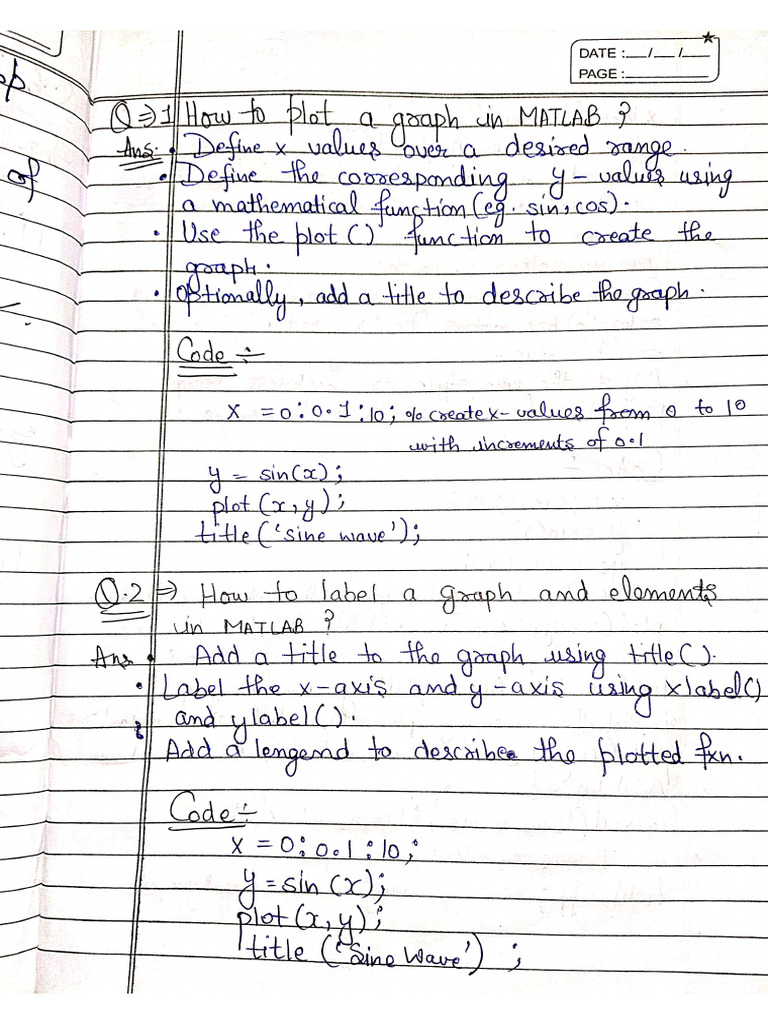 DATE :__/__/__
PAGE :
op
of
Q⇒1 How to plot a graph in MATLAB ?
Ans:- • Define x values over a desired range.
• Define the corresponding y-values using
a mathematical function (eg. sin, cos).
• Use the plot() function to create the
graph.
• Optionally, add a title to describe the graph.
Code ÷
x = 0:0.1:10; % create x-values from 0 to 10
with increments of 0.1
y = sin(x);
plot (x, y);
title ('sine wave');
Q.2 ⇒ How to label a graph and elements
in MATLAB ?
Ans • Add a title to the graph using title().
• Label the x-axis and y-axis using xlabel()
and ylabel().
Add a lengend to describe the plotted fxn.
Code ÷
x = 0:0.1:10;
y = sin (x);
plot (x, y);
title ('Sine Wave') ;